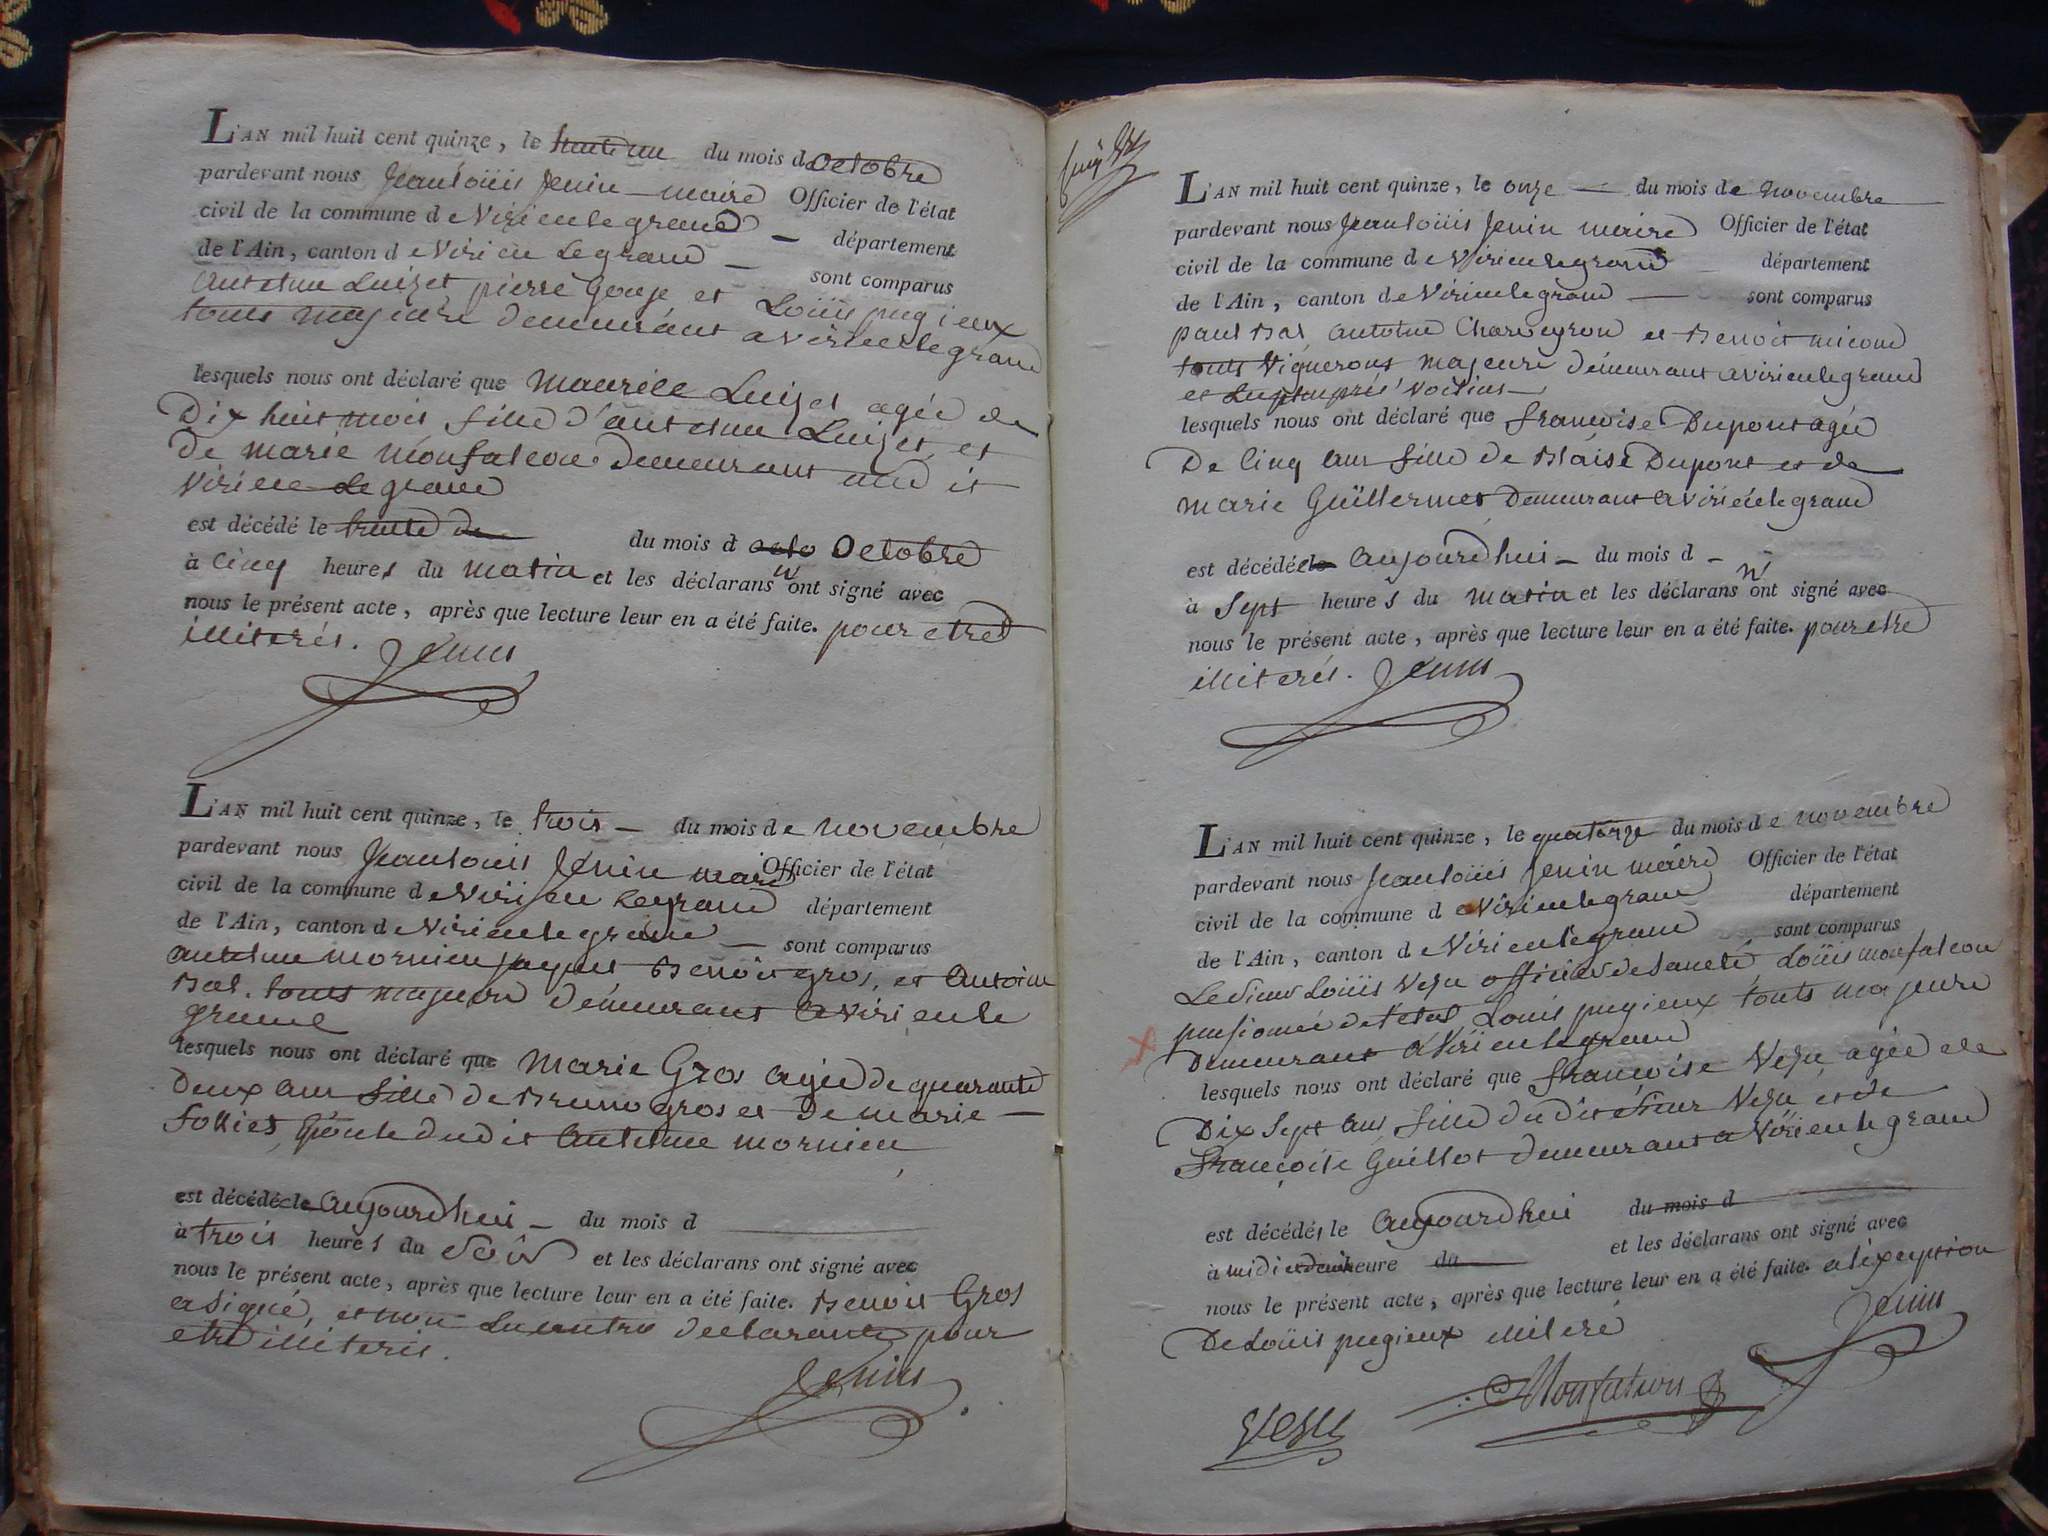 L'AN mil huit cent quinze, le trente un du mois d octobre
pardevant nous Jean Loüis Jenin maire Officier de l'état
civil de la commune de Virieu le grand département
de l'Ain, canton de Virieu Le grand sont comparus
antelme Luizet pierre Gouje et Loüis pugieux
touts majeure demeurant a virieu le grand
lesquels nous ont déclaré que maurice Luizet agée de
Dix huit mois fille d'antelme Luizet, et
de marie monfalcon demeurant au dit
Virieu Le grand
est décédé le trente de du mois d octo Octobre
à Cinq heures du matin et les déclarans n'ont signé avec
nous le présent acte, après que lecture leur en a été faite. pour etre
illiterés. Jenin
L'AN mil huit cent quinze, le trois du mois de novembre
pardevant nous Jean Louis Jenin maire Officier de l'état
civil de la commune de Virieu Le grand département
de l'Ain, canton de Virieu le grand sont comparus
antelme mornieu Benoit gros, et Antoine
Bal. touts majeure demeurant a Virieu le
grand
lesquels nous ont déclaré que Marie Gros agée de quarante
Deux ans fille de Bruno gros et De marie
follies, Epoute dudit Antelme mornieu
est décédée le Aujourdhui du mois d
à trois heures du Soir et les déclarans ont signé avec
nous le présent acte, après que lecture leur en a été faite. Benoit Gros
a signé, et non Les autre declarants pour
etre illiteris.
Jenin
L'AN mil huit cent quinze, le onze du mois de novembre
pardevant nous Jean Loüis Jenin maire Officier de l'état
civil de la commune de Virieu le grand département
de l'Ain, canton de Virieu le grand sont comparus
paul Bal antoine Charveyron et Benoit micoud
touts Vignerons majeure demeurant a virieu le grand
et Les plus près voisins
lesquels nous ont déclaré que francoise Dupont agée
De Cinq ans fille de Blaise Dupont et de
marie Guillermet Demeurant a Virieu le grand
est décédée le aujourdhui du mois d
à Sept heures du matin et les déclarans n'ont signé avec
nous le présent acte, après que lecture leur en a été faite. pour etre
illiterés. Jenin
L'AN mil huit cent quinze, le quatorze du mois de novembre
pardevant nous Jean Loüis Jenin maire Officier de l'état
civil de la commune de Virieu le grand département
de l'Ain, canton de Virieu le grand sont comparus
Le Sieur Loüis Vezu officier de Santé Loüis monfalcon
pensionnée de l'etat Louis pugieux touts majeure
Demeurant a Virieu le grand
lesquels nous ont déclaré que francoise Vezu agée de
Dix Sept ans fille dudit Sieur Vezu et de
francoise Guillot demeurant a Virieu le grand
est décédée le aujourdhui du mois d
à midi et demi heure du et les déclarans ont signé avec
nous le présent acte, après que lecture leur en a été faite. a lexception
De Loüis pugieux illiteré Jenin
Monfalcon
Vezu